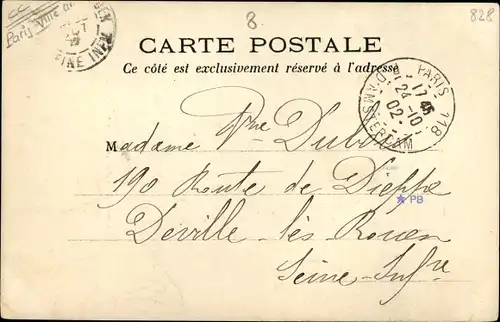 8
828
Paris Ville
SEINE INFRE
CARTE POSTALE
Ce côté est exclusivement réservé à l'adresse
PARIS 118
R. D'AMSTERDAM
17 45
24 -10
02
Madame Vve Dubois
190 Route de Dieppe
PB
Deville-lès-Rouen
Seine-Infre